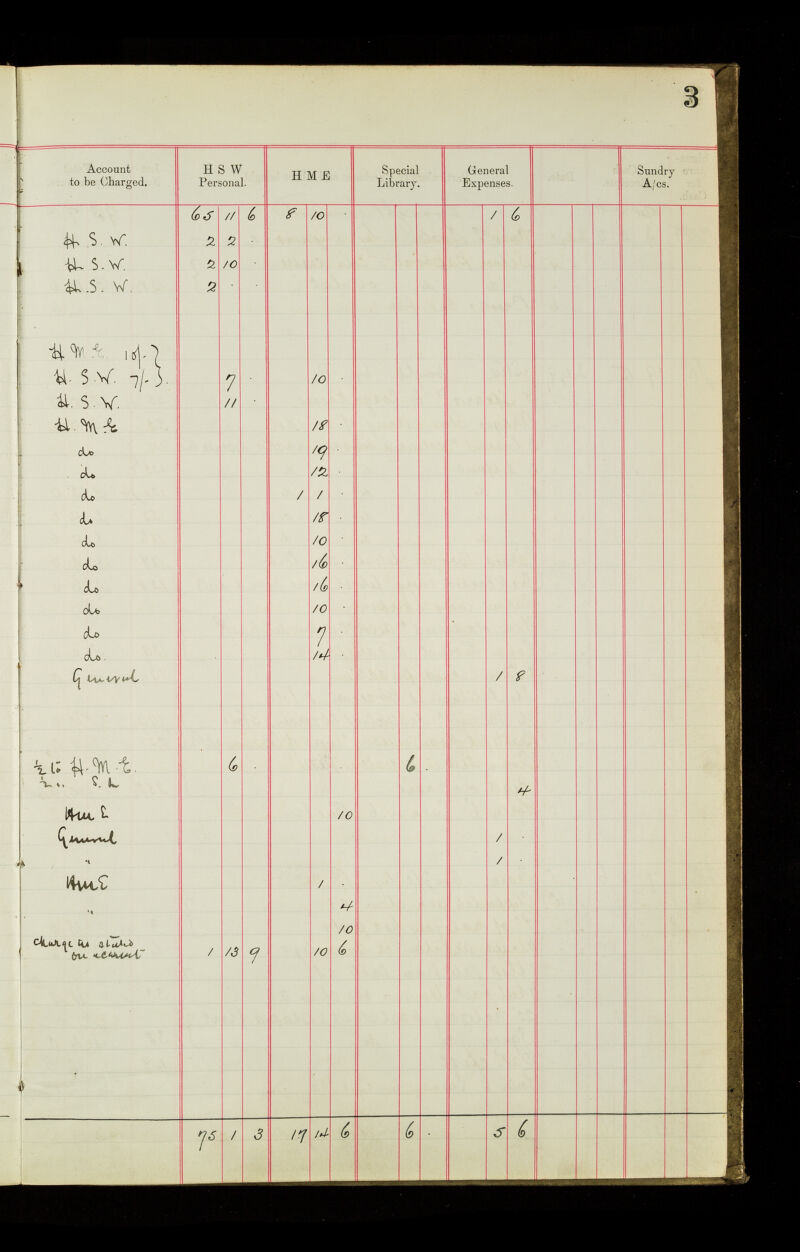 3
Account to be Charged. H S W Personal. H M E Special Library. General Expenses. Sundry A/cs.
65 11 6 8 10 · 1 6
H. S. W. 2 2 ·
H. S. W. 2 10 ·
H. S. W. 2 · ·
H. M. E. 10/- }
H. S. W. 7/- } 7 · 10 ·
H. S. W. 11 ·
H. M. E 18 ·
do 19 ·
do 12 ·
do 1 1 ·
do 18 ·
do 10 ·
do 16 ·
do 16 ·
do 10 ·
do 7 ·
do. 14 ·
General 1 8
½ to H. M. E. 6 · 6 ·
½ " S. L. 4
HME 10
General 1 ·
" 1 ·
HME 1 ·
" 4
10
Charge as stated
on account 1 13 9 10 6
75 1 3 17 14 6 6 · 5 6